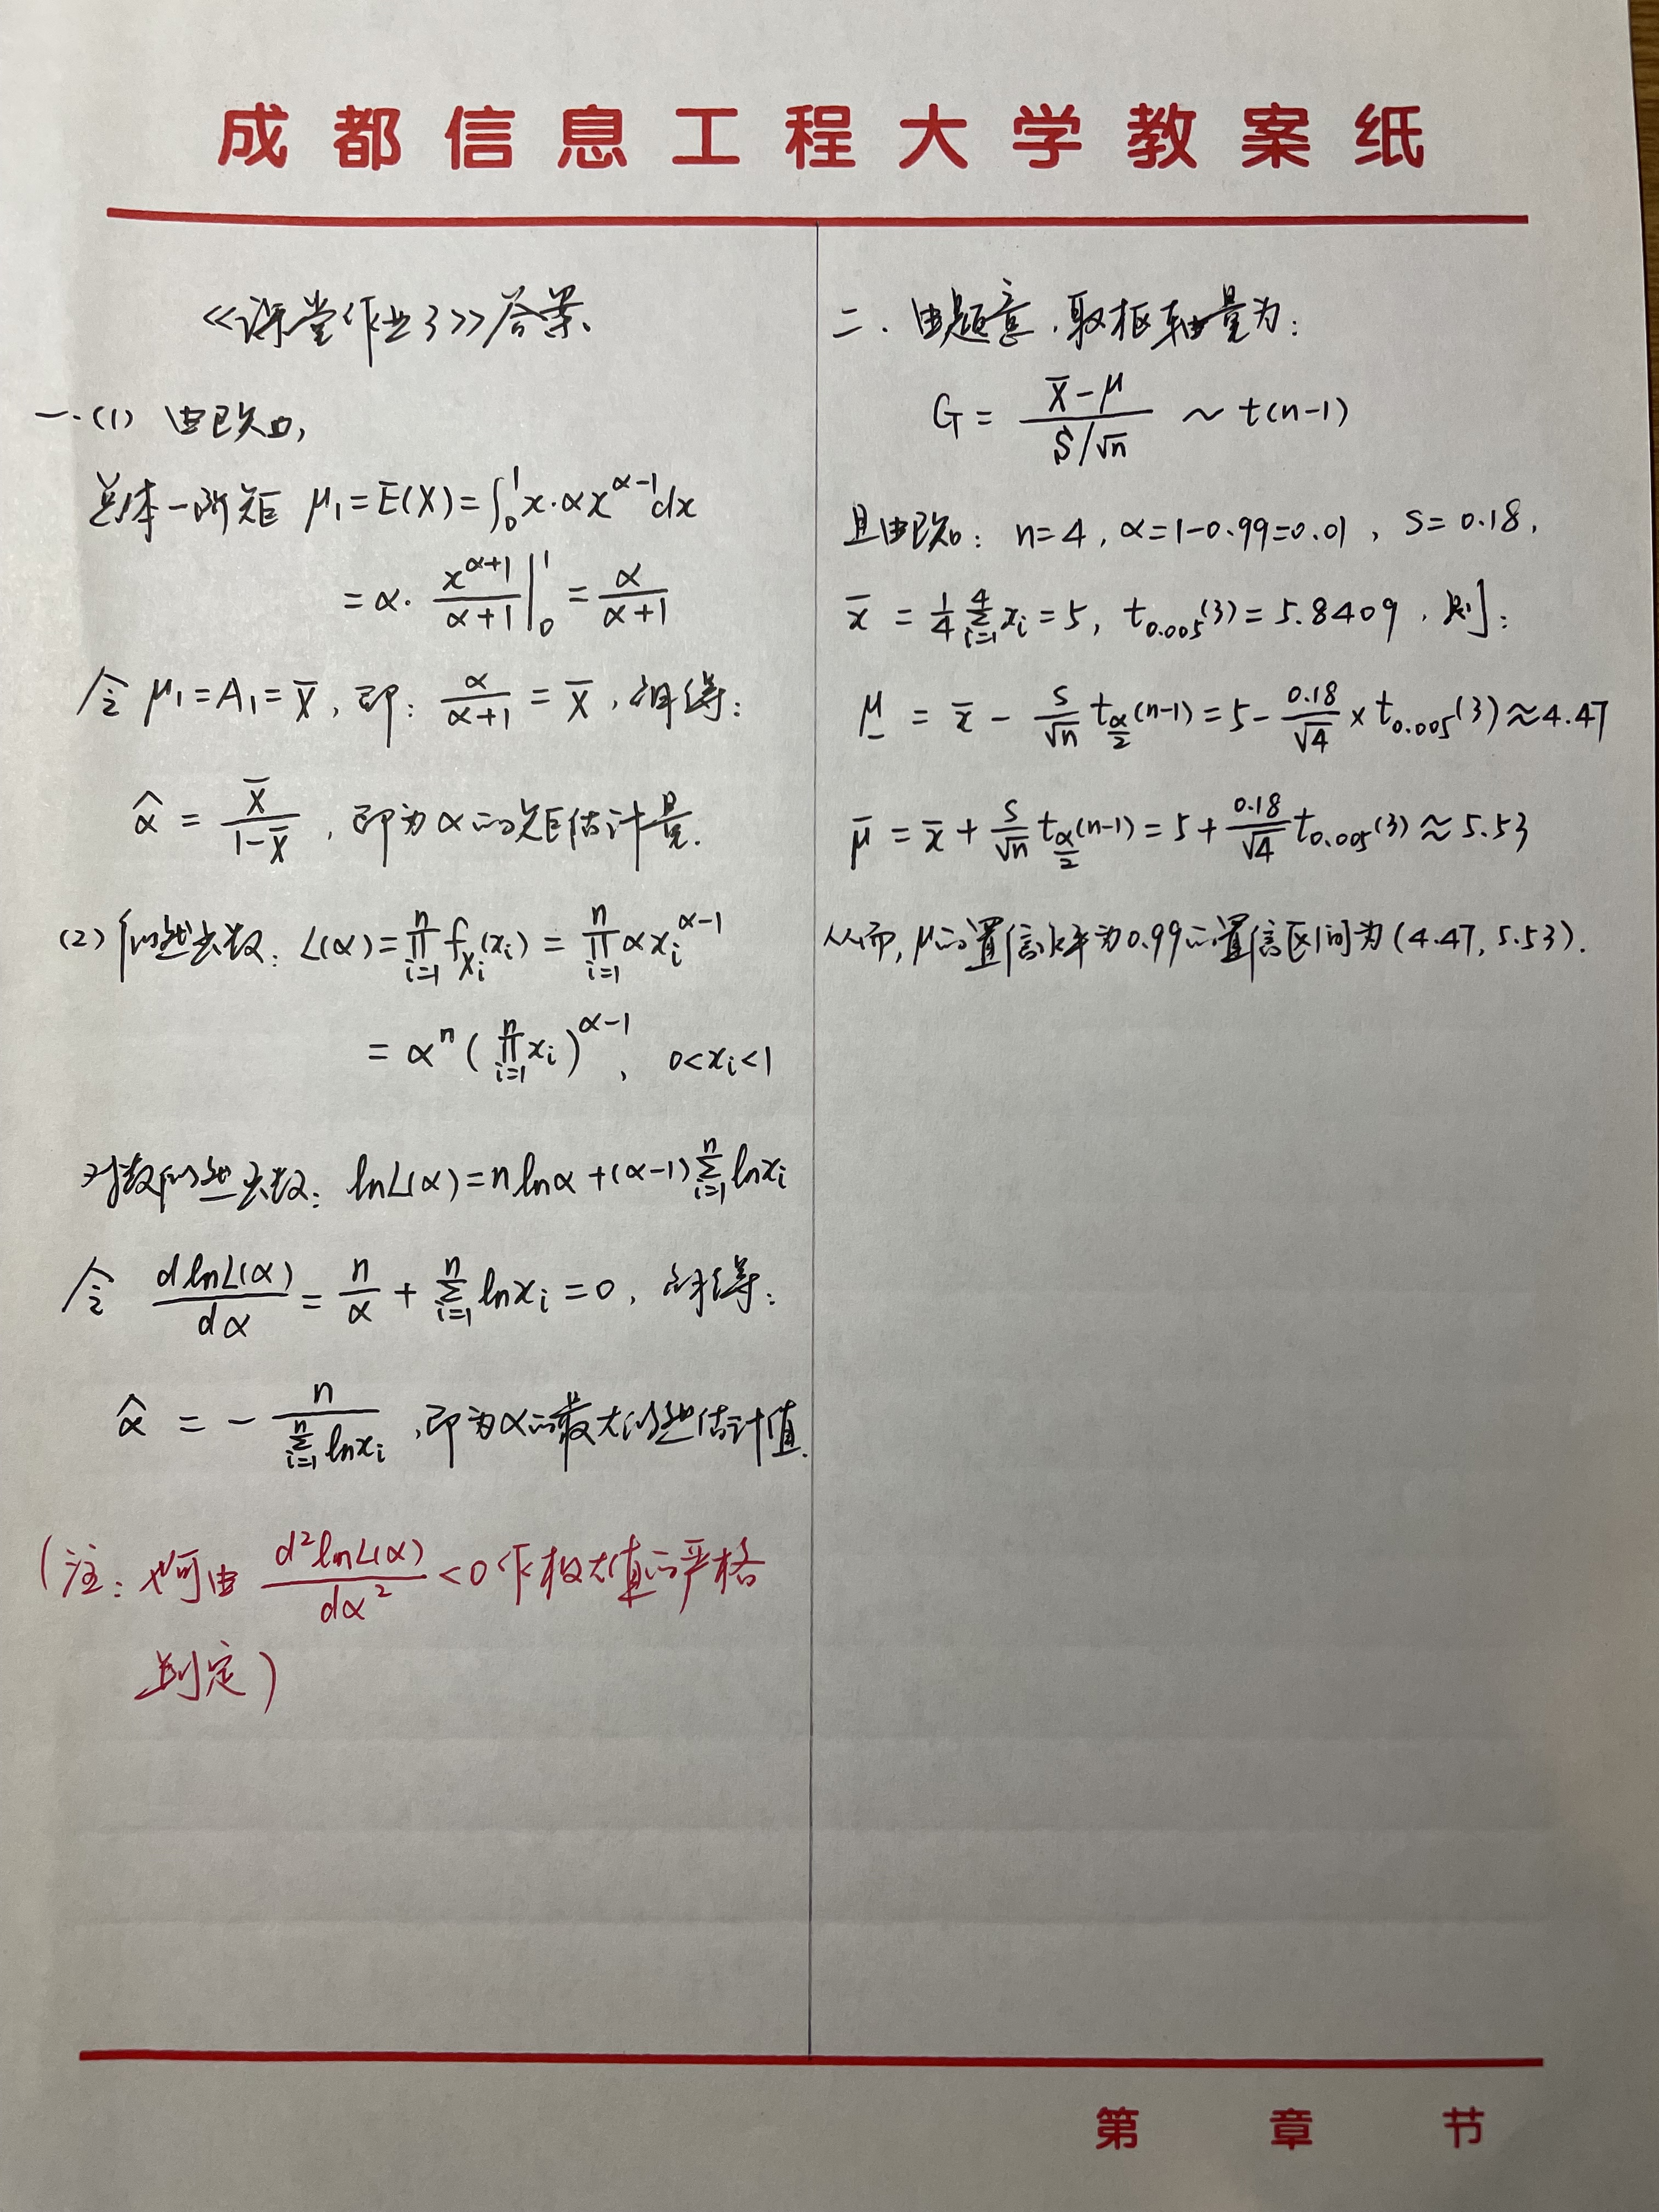 成都信息工程大学教案纸
《课堂作业3》答案
一.(1) 由已知,
总体一阶矩 μ₁=E(X)=∫₀¹x·αx^(α-1)dx
=α· x^(α+1)/(α+1)|₀¹ = α/(α+1)
令 μ₁=A₁=X̄, 即: α/(α+1) = X̄, 解得:
α̂ = X̄/(1-X̄), 即为α的矩估计量.
(2) 似然函数: L(α)=∏ᵢ₌₁ⁿ f_Xᵢ(xᵢ) = ∏ᵢ₌₁ⁿ αxᵢ^(α-1)
= αⁿ(∏ᵢ₌₁ⁿ xᵢ)^(α-1), 0<xᵢ<1
对数似然函数: lnL(α)=n lnα+(α-1)∑ᵢ₌₁ⁿ lnxᵢ
令 dlnL(α)/dα = n/α + ∑ᵢ₌₁ⁿ lnxᵢ=0, 解得:
α̂ = - n/(∑ᵢ₌₁ⁿ lnxᵢ), 即为α的最大似然估计值.
(注: 也可由 d²lnL(α)/dα² <0作极大值的严格
判定)
二. 由题意,取枢轴量为:
G = (X̄-μ)/(S/√n) ~ t(n-1)
且由已知: n=4, α=1-0.99=0.01, s=0.18,
x̄ = 1/4 ∑ᵢ₌₁⁴ xᵢ=5, t₀.₀₀₅(3)=5.8409, 则:
μ̲ = x̄ - s/√n t_(α/2)(n-1)=5- 0.18/√4 × t₀.₀₀₅(3)≈4.47
μ̄ = x̄ + s/√n t_(α/2)(n-1)=5+ 0.18/√4 t₀.₀₀₅(3)≈5.53
从而, μ的置信水平为0.99的置信区间为(4.47, 5.53).
第 章 节